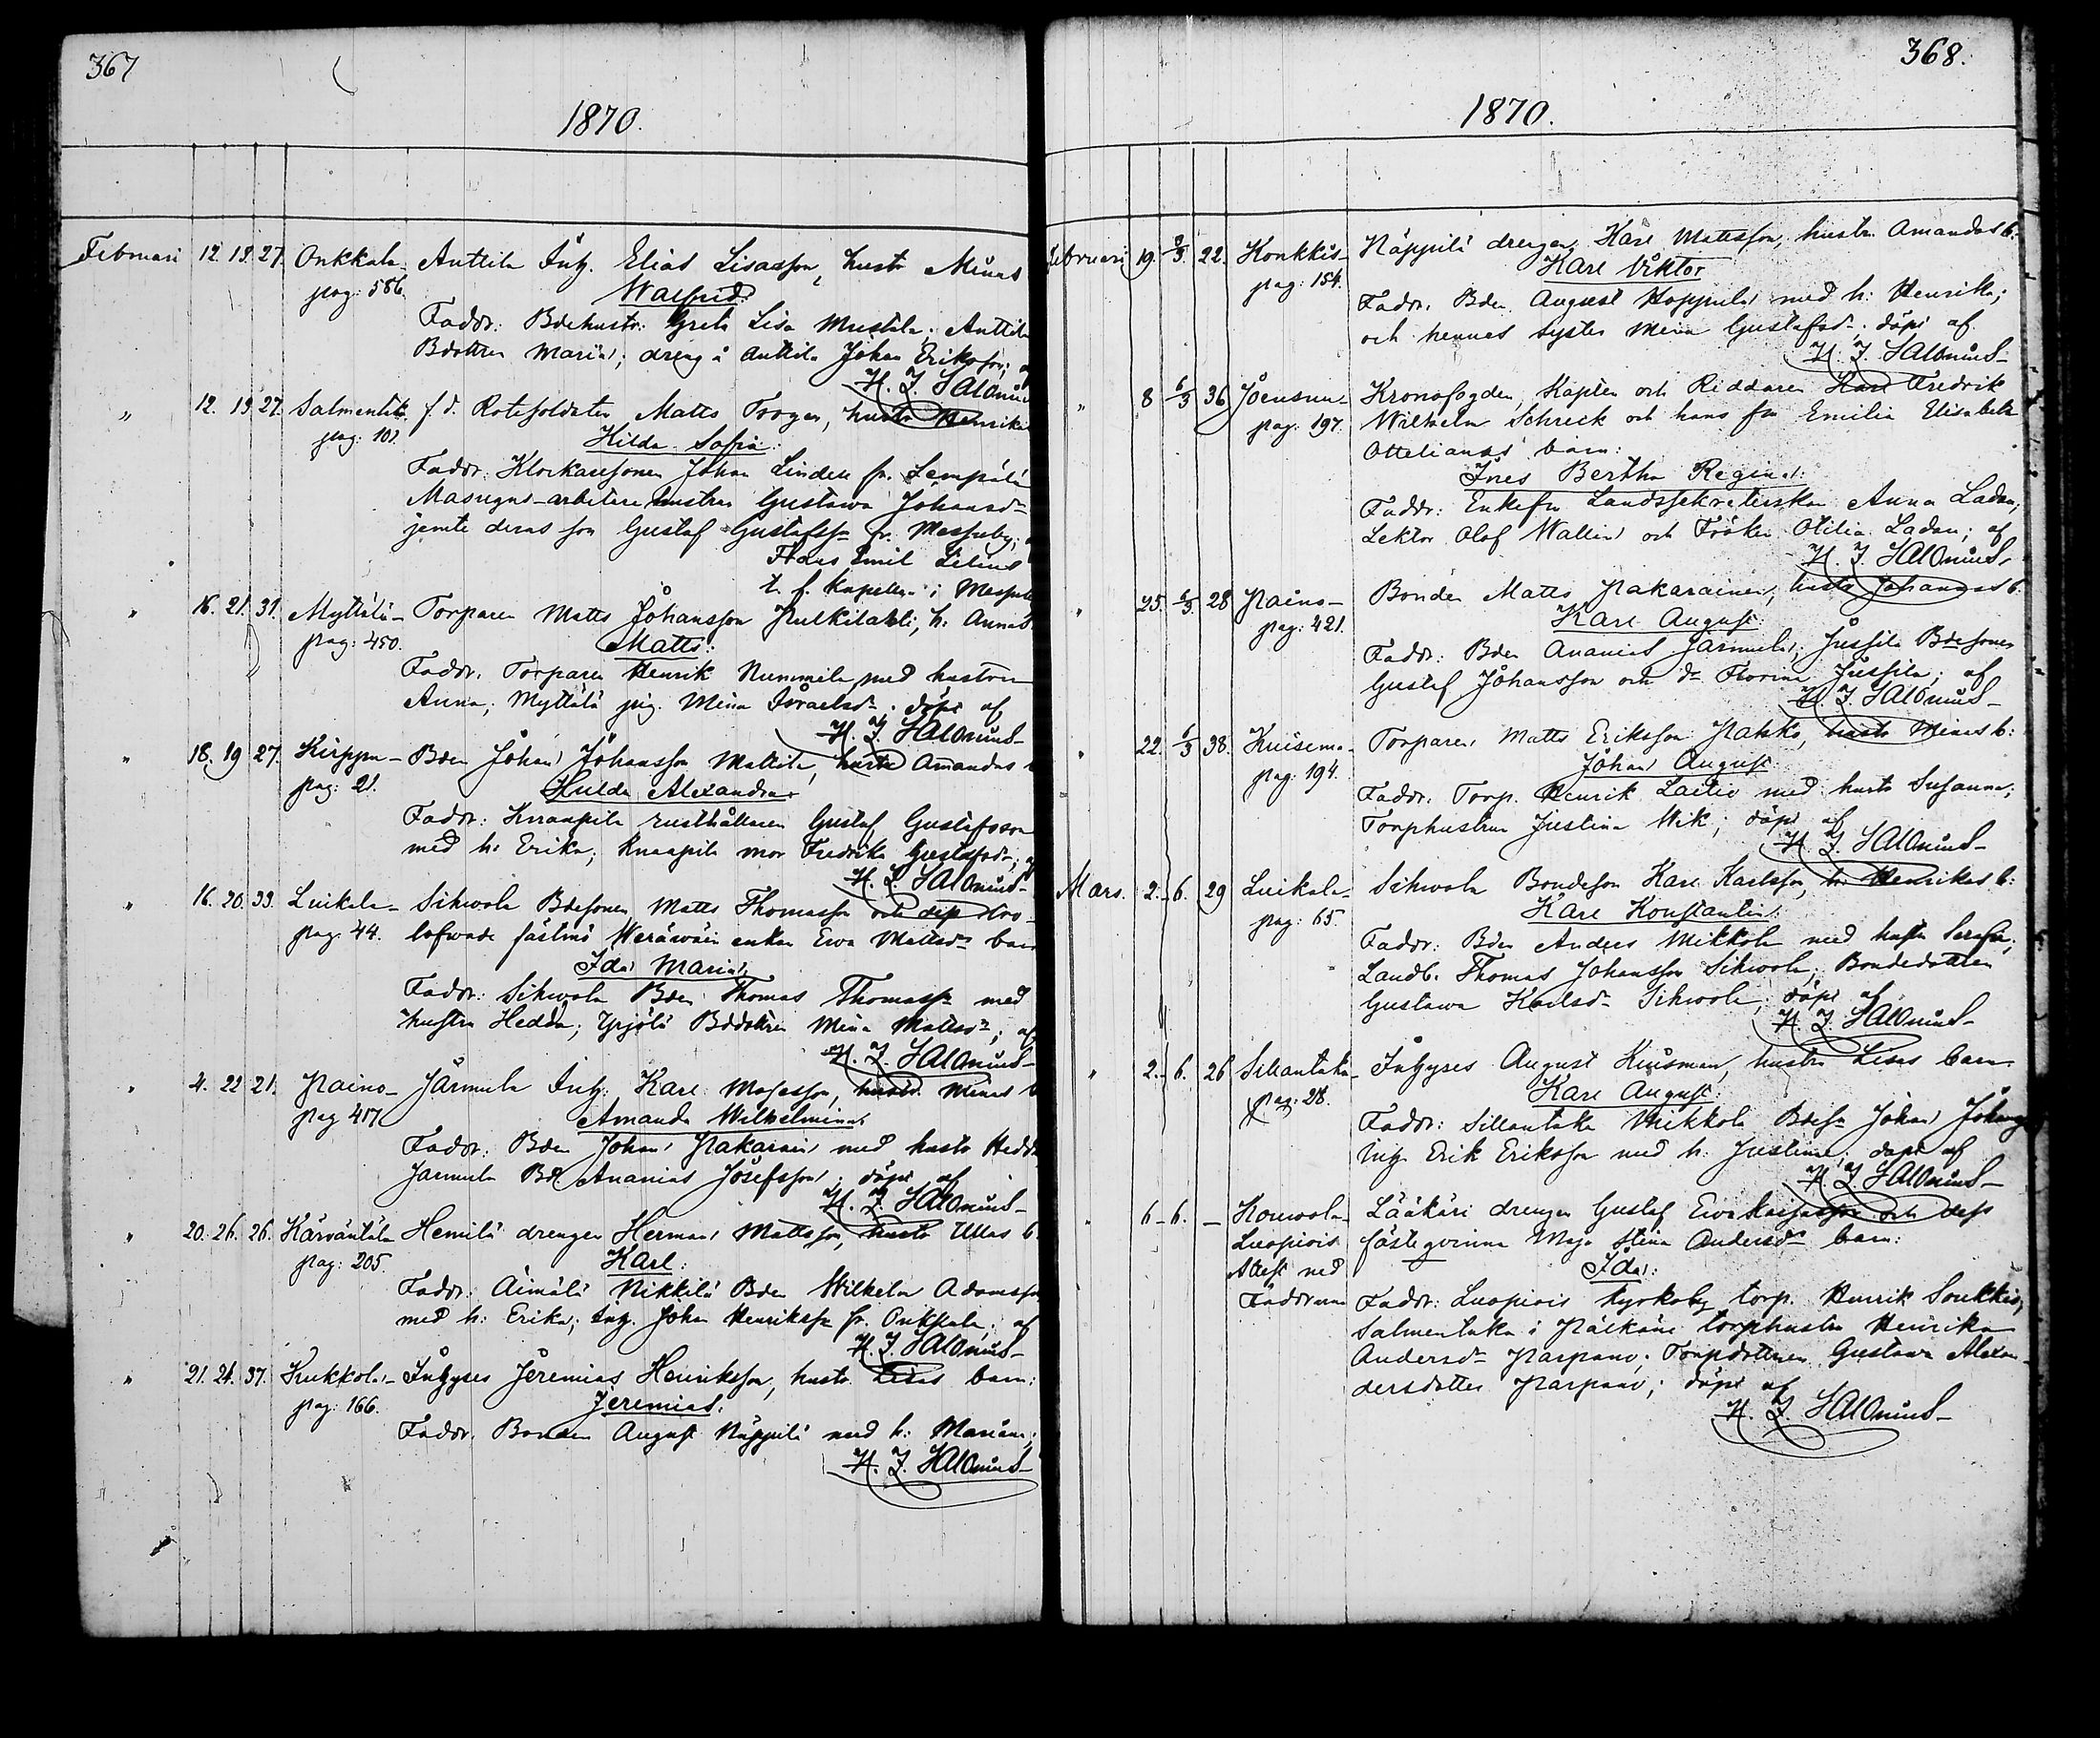 367
1870.
Februari 12. 13. 27. Onkkala Anttila Inh. Elias Lisasson, hustr Minas
pag: 586. Walfrid:
Faddr: Bdehustr: Greta Lisa Mustala; Anttila
Bdottren Maria; dreng å Anttila Johan Eriksson; af
H. J. Salonius
" 12. 13. 27. Salmentk. f. d. Rotesoldaten Matts Trogen, hustr Henrikas
pag: 101. Hilda Sofia:
Faddr: Klockaresonen Johan Lindell fr. Lempälä
Masugns-arbetare hustrun Gustawa Johansd-
jemte deras son Gustaf Gustafss- fr. Messuby;
Frans Emil Lilius
t. f. Kapellan i Messuby
" 16. 21. 31. Myttälä- Torparen Matts Johansson Pulkilahti, h: Annas
pag: 450. Matts:
Faddr. Torparen Henrik Nummila med hustrun
Anna; Myttälä pig. Mina Israelsd-. döpt af
H. J. Salonius-
" 18. 19 27. Kirppu- Bden Johan Johansson Mattila, hustr Amandas b
pag: 21. Hilda Alexandra
Faddr: Knaapila rusthållaren Gustaf Gustafsson
med h: Erika; Knaapila mor Fredrika Gustafsd-; af
H. J. Salonius-
" 16. 20. 33. Luikala- Sihwola Bdesonen Matts Thomasson och dess tro-
pag: 44. lofwade fästmö enkan Ewa Mattsd- barn
Ida Maria:
Faddr: Sihwola Bden Thomas Thomass- med
hustrun Hedda; Yrjölä Bddottren Mina Mattsd-; af
H. J. Salonius-
" 4. 22 21. Paino- Jarmula Inh. Karl Mosesson, hustr. Minas b
pag 417 Amanda Wilhelmina
Faddr: Bden Johan Pakarinen med hustr Hedda
Jarmula Bd. Ananias Josefsson; döpt af
H. J. Salonius-
" 20. 26. 26. Kärwäntäla Hemilä drengen Herman Mattsson, hustr Ullas b.
pag: 205. Karl:
Faddr: Äimälä Nikkilä Bden Wilhelm Adamsson
med h: Erika; Inh. Johan Henrikss- fr. Onkkala; af
H. J. Salonius-
" 21. 26. 37. Kukkola- Inhyses Jeremias Henriksson, hustr. Lisas barn:
pag: 166. Jeremias:
Faddr. Bonden August Näppilä med h: Maria;
H. J. Salonius-
368.
1870.
Februari 19. 2/3. 22. Konkkis- Näppilä drengen Karl Mattsson, hustr. Amandas b:
pag: 154. Karl Viktor
Faddr. Bden August Hoppula med h: Henrika;
och hennes syster Mina Gustafsd-. döpt af
H. J. Salonius-
" 8 6/3 36 Joensuu- Kronofogden, Kapten och Riddaren Karl Fredrik
pag: 197. Wilhelm Schreck och hans fru Emilia Elisabeth
Ottelianas barn:
Ines Bertha Regina:
Faddr: Enkefru Landssekreterskan Anna Ladau,
Lektor Olof Wallin och Fröken Otilia Ladau; af
H. J. Salonius-
" 25. 6/3 28 Paino- Bonden Matts Pakarainen, hustr Johannas b.
pag: 421. Karl August:
Faddr: Bden Ananias Jarmula; Jussila Bdesonen
Gustaf Johansson och d- Florina Jussila; af
H. J. Salonius-
" 22. 6/3 38. Kuisema- Torparen Matts Eriksson Pakko, hustr Minas b:
pag: 194. Johan August:
Faddr. Torp. Henrik Laitio med hustr Susanna;
Torphustrun Justina Wik; döpt af
H. J. Salonius-
Mars. 2. 6. 29 Luikala- Sihwola Bondeson Karl Karlsson, h: Henrikas b:
pag: 65. Karl Konstantin:
Faddr: Bden Anders Mikkola med hustr Serafia;
Landb. Thomas Johansson Sihwola; Bondedottren
Gustawa Karlsd- Sihwola; döpt af
H. J. Salonius-
" 2. 6. 26 Sillantaka- Inhyses August Kuisman, hustr Lisas barn
pag: 28. Karl August:
Faddr: Sillantaka Mikkola Bdes- Johan Johans
Inh. Erik Eriksson med h: Justina; döpt af
H. J. Salonius-
" 6. 6. - Kouwola- Lääkäri drengen Gustaf Ewa Kaisasson och dess
Luopiois fästeqvinna Maja Stina Andersd- barn:
Attest med Ida:
Faddrarne Faddr: Luopiois kyrkoby torp. Henrik Soukkio,
Salmentaka i Pälkäne torphustru Henrika
Andersd- Parpano; Torpdottren Gustawa Alexan-
dersdotter Parpano; döpt af
H. J. Salonius-